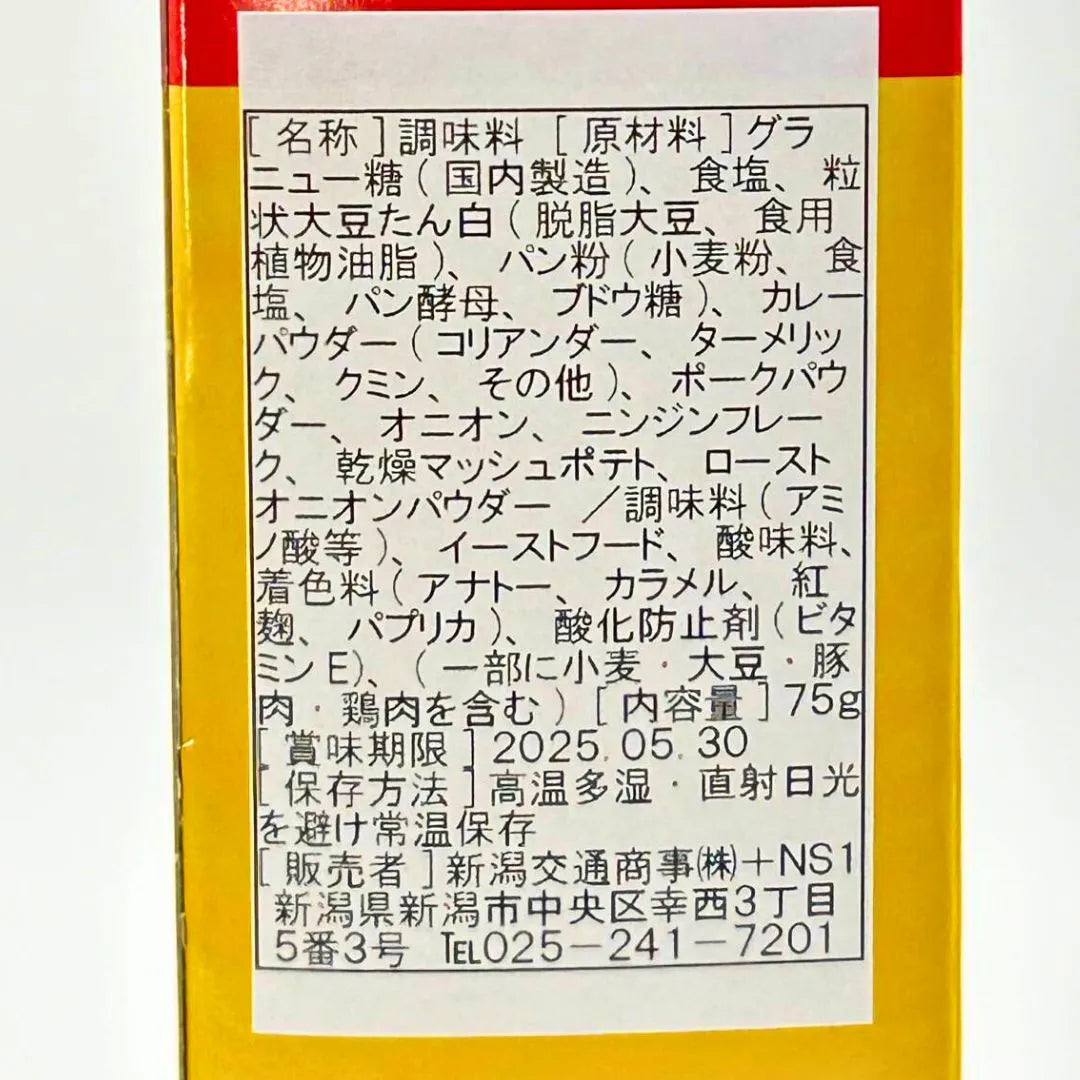 [名称]調味料 [原材料]グラ
ニュー糖(国内製造)、食塩、粒
状大豆たん白(脱脂大豆、食用
植物油脂)、パン粉(小麦粉、食
塩、パン酵母、ブドウ糖)、カレー
パウダー(コリアンダー、ターメリッ
ク、クミン、その他)、ポークパウ
ダー、オニオン、ニンジンフレー
ク、乾燥マッシュポテト、ロースト
オニオンパウダー ／調味料(アミ
ノ酸等)、イーストフード、酸味料、
着色料(アナトー、カラメル、紅
麹、パプリカ)、酸化防止剤(ビタ
ミンE)、(一部に小麦・大豆・豚
肉・鶏肉を含む)[内容量]75g
[賞味期限]2025.05.30
[保存方法]高温多湿・直射日光
を避け常温保存
[販売者]新潟交通商事㈱+NS1
新潟県新潟市中央区幸西3丁目
5番3号 ℡025-241-7201